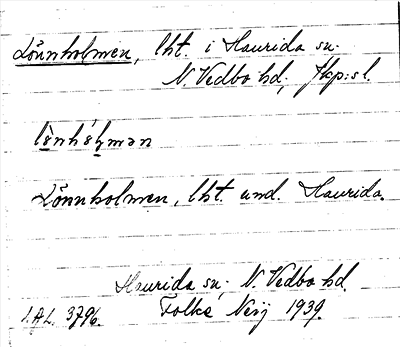 Lönnholmen, lht. i Haurida sn.
N. Vedbo hd; Jkp:s l.
lön̄hól̥mən
Lönnholmen, lht. und. Haurida.
Haurida sn; N. Vedbo hd.
I.A.L. 3796. Folke Nery 1939.